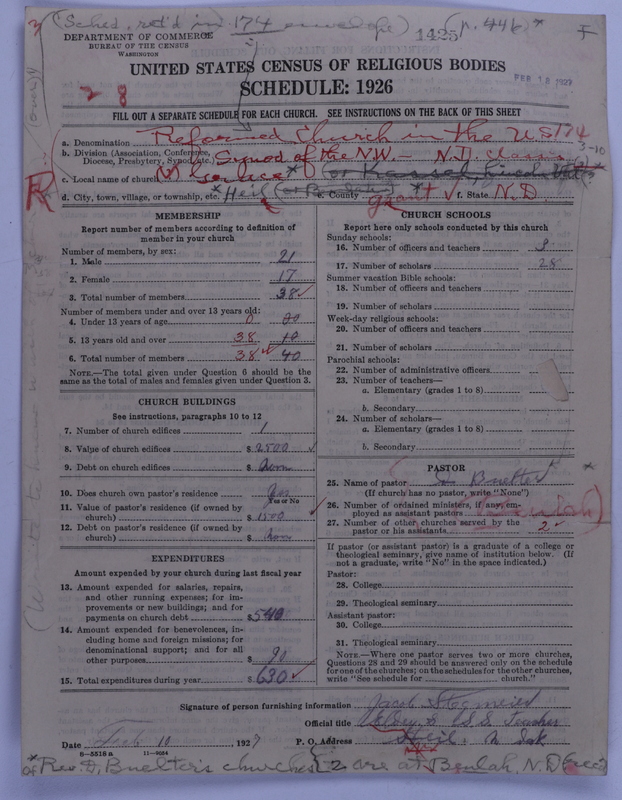 (Sched. ret'd in 174 envelope) 1425 (p. 446*
DEPARTMENT OF COMMERCE
BUREAU OF THE CENSUS
WASHINGTON
UNITED STATES CENSUS OF RELIGIOUS BODIES
SCHEDULE: 1926
FEB 18 1927
28
FILL OUT A SEPARATE SCHEDULE FOR EACH CHURCH. SEE INSTRUCTIONS ON THE BACK OF THIS SHEET
a. Denomination Reformed Church in the U.S. 174
b. Division (Association, Conference, Diocese, Presbytery, Synod, etc.) Synod of the N.W. — N.D. Classis 3-10
c. Local name of church
R
d. City, town, village, or township, etc. *Heil e. County Grant f. State N.D
MEMBERSHIP
Report number of members according to definition of
member in your church
Number of members, by sex:
1. Male 21
2. Female 17
3. Total number of members 38
Number of members under and over 13 years old:
4. Under 13 years of age 0 20
5. 13 years old and over 38
6. Total number of members 38 40
NOTE.—The total given under Question 6 should be the
same as the total of males and females given under Question 3.
CHURCH BUILDINGS
See instructions, paragraphs 10 to 12
7. Number of church edifices 1
8. Value of church edifices $ 2500
9. Debt on church edifices $ None
10. Does church own pastor's residence Yes
Yes or No
11. Value of pastor's residence (if owned by
church) $ 1500
12. Debt on pastor's residence (if owned by
church) $ None
EXPENDITURES
Amount expended by your church during last fiscal year
13. Amount expended for salaries, repairs,
and other running expenses; for im-
provements or new buildings; and for
payments on church debt $ 540
14. Amount expended for benevolences, in-
cluding home and foreign missions; for
denominational support; and for all
other purposes $ 90
15. Total expenditures during year $ 630
CHURCH SCHOOLS
Report here only schools conducted by this church
Sunday schools:
16. Number of officers and teachers 3
17. Number of scholars 28
Summer vacation Bible schools:
18. Number of officers and teachers
19. Number of scholars
Week-day religious schools:
20. Number of officers and teachers
21. Number of scholars
Parochial schools:
22. Number of administrative officers
23. Number of teachers—
a. Elementary (grades 1 to 8)
b. Secondary
24. Number of scholars—
a. Elementary (grades 1 to 8)
b. Secondary
PASTOR
25. Name of pastor Buelter *
(If church has no pastor, write "None")
26. Number of ordained ministers, if any, em-
ployed as assistant pastors (Beulah)
27. Number of other churches served by the
pastor or his assistants 2
If pastor (or assistant pastor) is a graduate of a college or
theological seminary, give name of institution below. (If
not a graduate, write "No" in the space indicated.)
Pastor:
28. College
29. Theological seminary
Assistant pastor:
30. College
31. Theological seminary
NOTE.—Where one pastor serves two or more churches,
Questions 28 and 29 should be answered only on the schedule
for one of the churches; on the schedules for the other churches,
write "See schedule for church."
Signature of person furnishing information Jacob Stegmeier
Official title S.S. Teacher
Date Feb 10, 1927 P. O. Address Heil N Dak
8—5516 a 11—9034
* of Rev. D. Buelter's churches 2 are at Beulah, N.D.